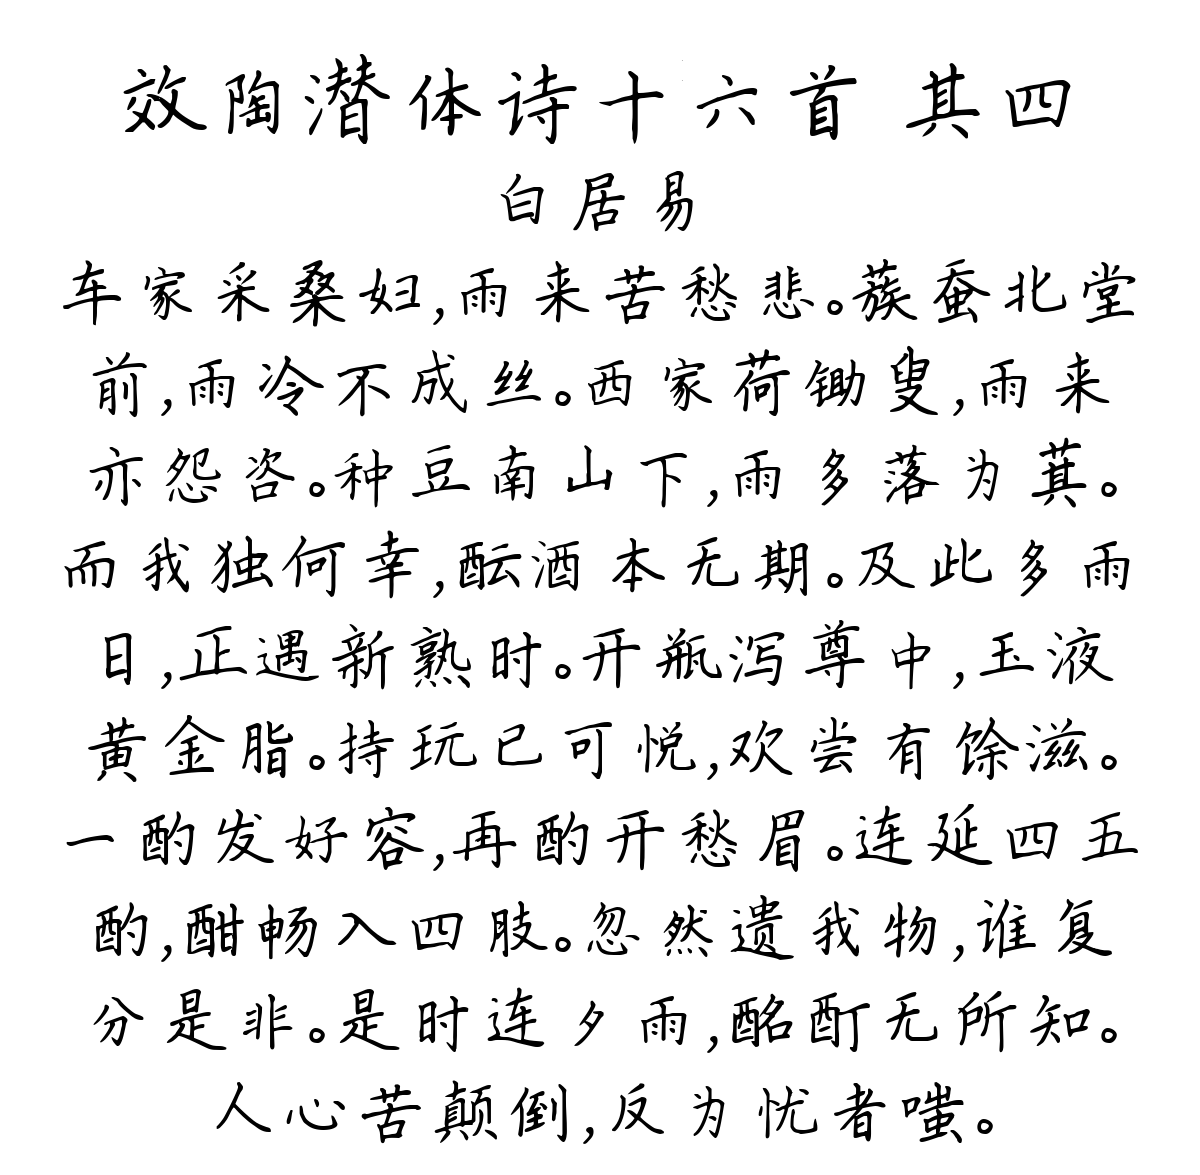 效陶潜体诗十六首 其四
白居易
车家采桑妇,雨来苦愁悲。蔟蚕北堂
前,雨冷不成丝。西家荷锄叟,雨来
亦怨咨。种豆南山下,雨多落为萁。
而我独何幸,酝酒本无期。及此多雨
日,正遇新熟时。开瓶泻尊中,玉液
黄金脂。持玩已可悦,欢尝有馀滋。
一酌发好容,再酌开愁眉。连延四五
酌,酣畅入四肢。忽然遗我物,谁复
分是非。是时连夕雨,酩酊无所知。
人心苦颠倒,反为忧者嗤。